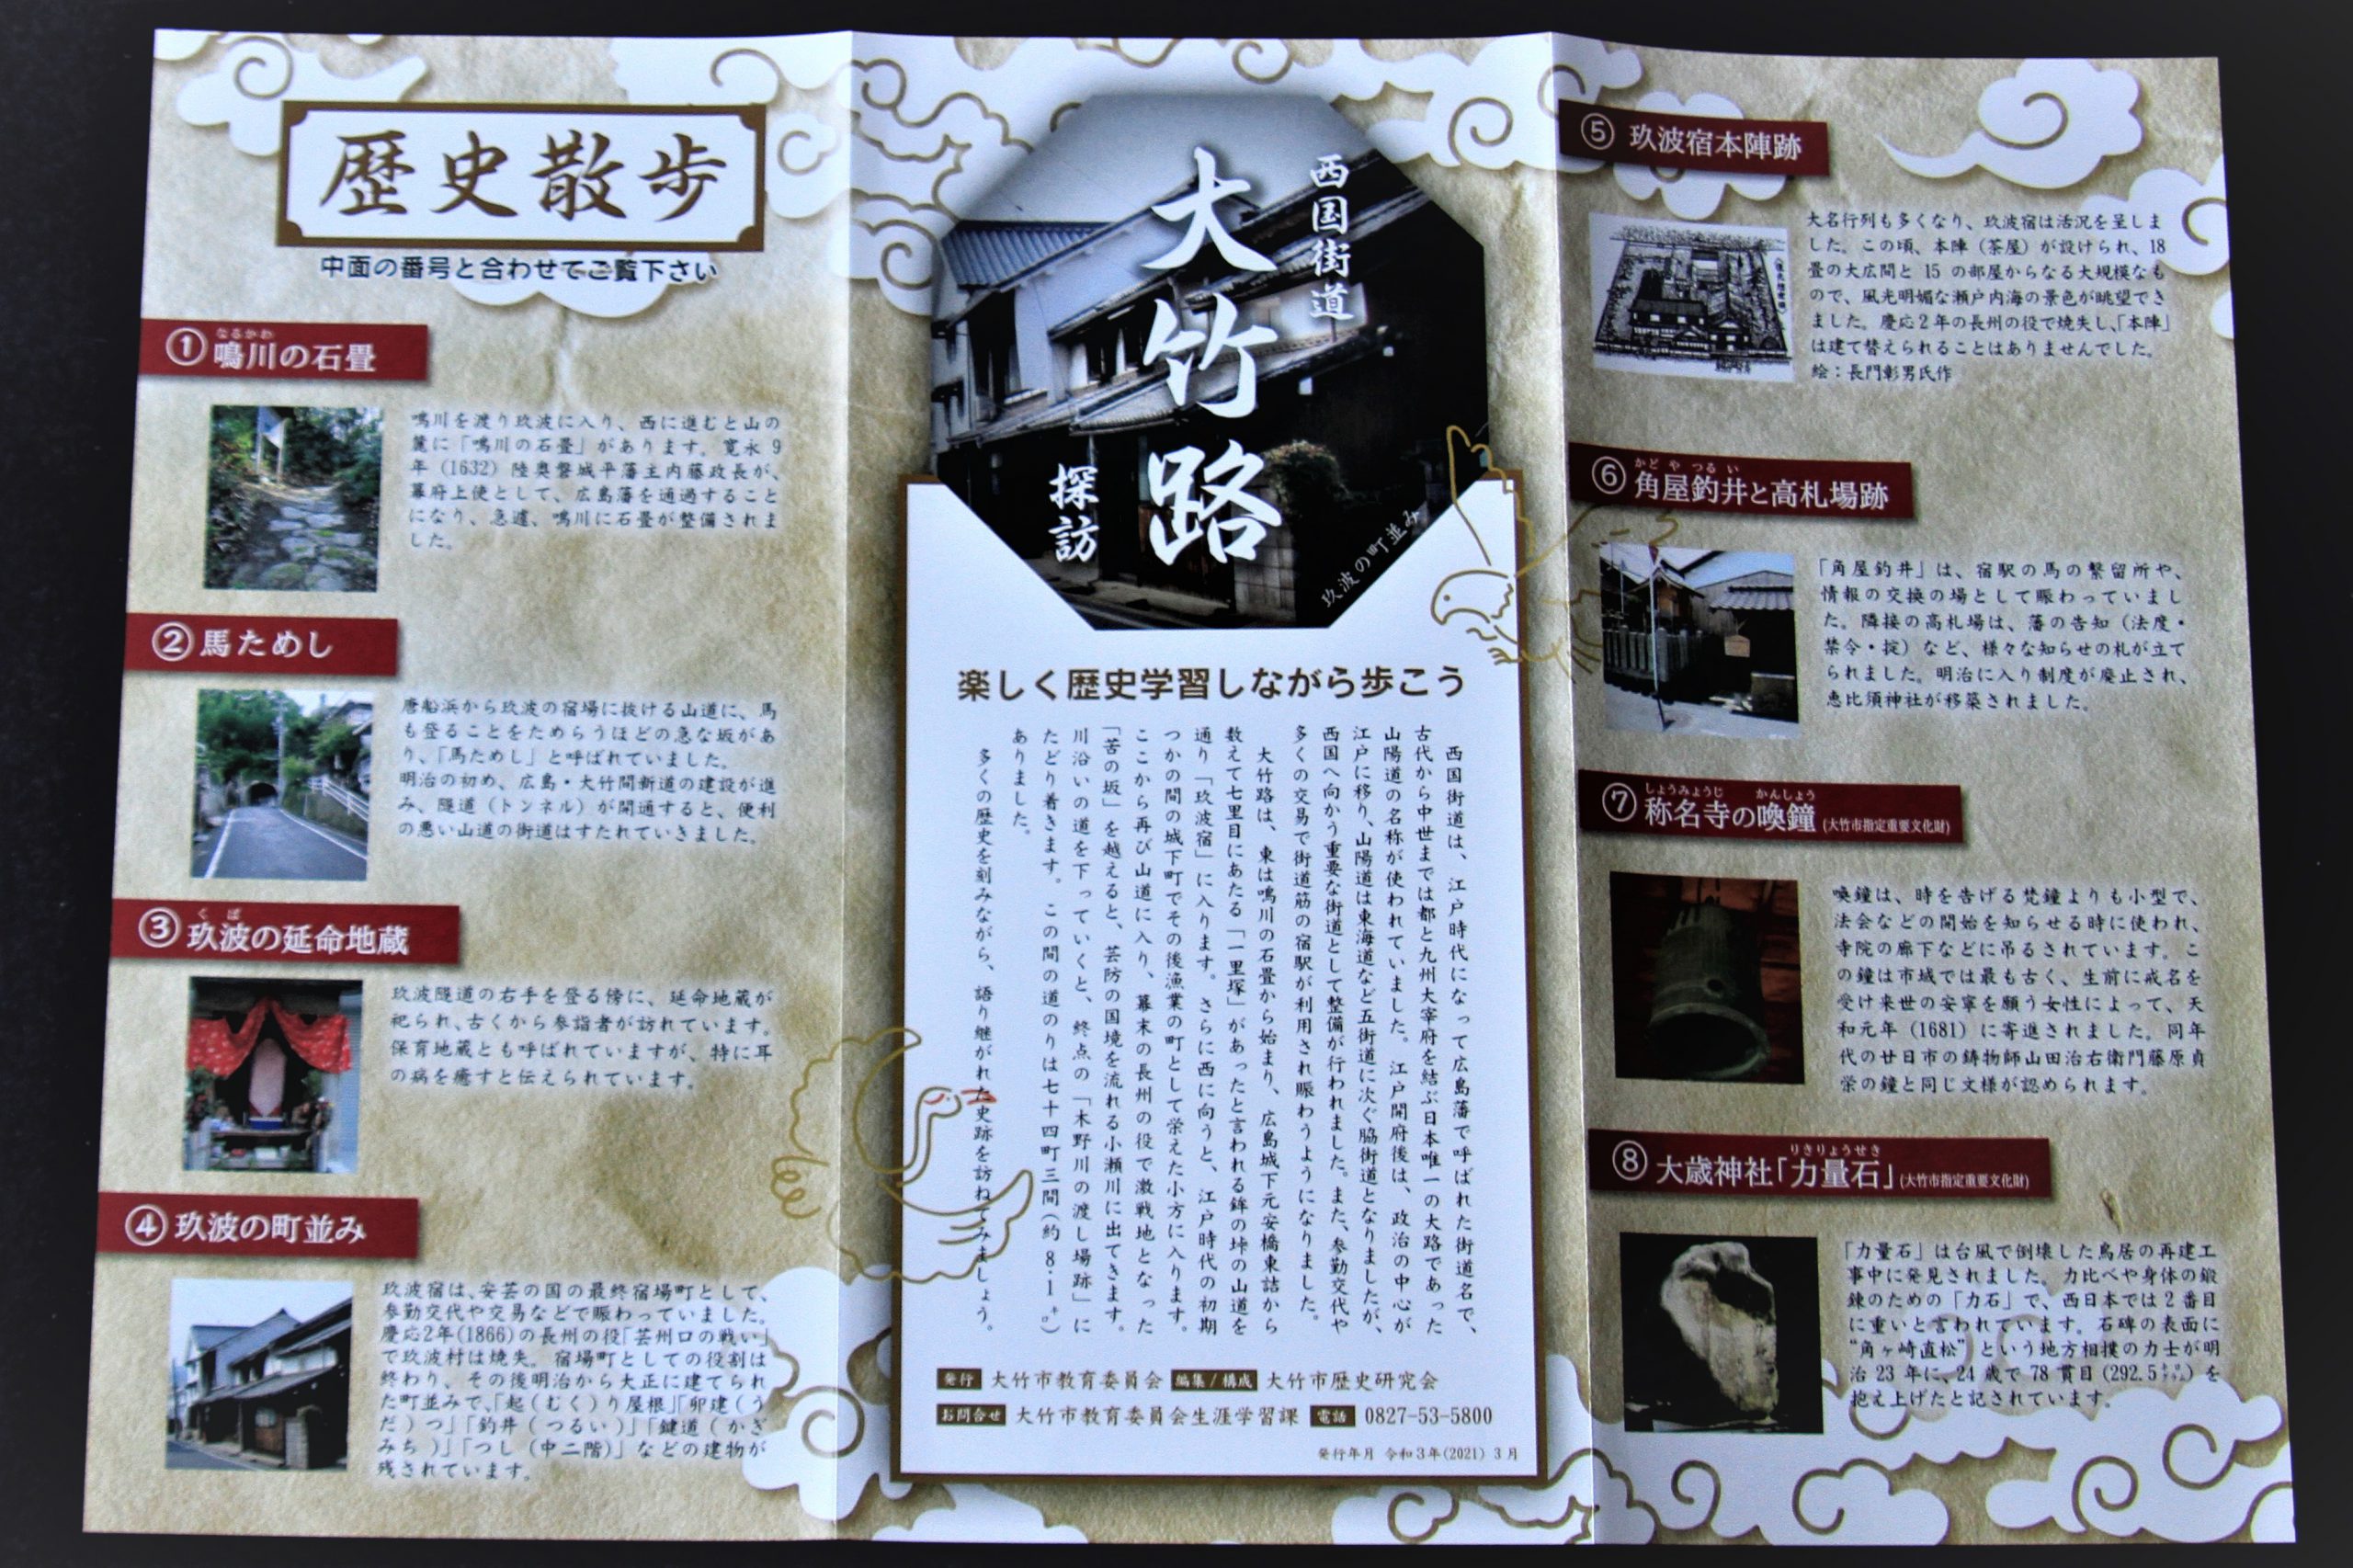 歴史散歩
中面の番号と合わせてご覧下さい
なるかわ
① 鳴川の石畳
鳴川を渡り玖波に入り、西に進むと山の
麓に「鳴川の石畳」があります。寛永 9
年（1632）陸奥磐城平藩主内藤政長が、
幕府上使として、広島藩を通過すること
になり、急遽、鳴川に石畳が整備されま
した。
② 馬ためし
唐船浜から玖波の宿場に抜ける山道に、馬
も登ることをためらうほどの急な坂があ
り、「馬ためし」と呼ばれていました。
明治の初め、広島・大竹間新道の建設が進
み、隧道（トンネル）が開通すると、便利
の悪い山道の街道はすたれていきました。
くば
③ 玖波の延命地蔵
玖波隧道の右手を登る傍に、延命地蔵が
祀られ、古くから参詣者が訪れています。
保育地蔵とも呼ばれていますが、特に耳
の病を癒すと伝えられています。
④ 玖波の町並み
玖波宿は、安芸の国の最終宿場町として、
参勤交代や交易などで賑わっていました。
慶応2年(1866)の長州の役「芸州口の戦い」
で玖波村は焼失。宿場町としての役割は
終わり、その後明治から大正に建てられ
た町並みで、「起（むく）り屋根」「卯建（う
だ）つ」「釣井（つるい）」「鍵道（かぎ
みち）」「つし（中二階）」などの建物が
残されています。
西国街道
大竹路
探訪
玖波の町並み
楽しく歴史学習しながら歩こう
西国街道は、江戸時代になって広島藩で呼ばれた街道名で、
古代から中世までは都と九州大宰府を結ぶ日本唯一の大路であった
山陽道の名称が使われていました。江戸開府後は、政治の中心が
江戸に移り、山陽道は東海道など五街道に次ぐ脇街道となりましたが、
西国へ向かう重要な街道として整備が行われました。また、参勤交代や
多くの交易で街道筋の宿駅が利用され賑わうようになりました。
大竹路は、東は鳴川の石畳から始まり、広島城下元安橋東詰から
数えて七里目にあたる「一里塚」があったと言われる鉾の峠の山道を
通り「玖波宿」に入ります。さらに西に向うと、江戸時代の初期
つかの間の城下町でその後漁業の町として栄えた小方に入ります。
ここから再び山道に入り、幕末の長州の役で激戦地となった
「苦の坂」を越えると、芸防の国境を流れる小瀬川に出てきます。
川沿いの道を下っていくと、終点の「木野川の渡し場跡」に
たどり着きます。この間の道のりは七十四町三間（約8.1㌔）
ありました。
多くの歴史を刻みながら、語り継がれた史跡を訪ねてみましょう。
発行 大竹市教育委員会 編集/構成 大竹市歴史研究会
お問合せ 大竹市教育委員会生涯学習課 電話 0827-53-5800
発行年月 令和3年(2021) 3月
⑤ 玖波宿本陣跡
大名行列も多くなり、玖波宿は活況を呈しま
した。この頃、本陣（茶屋）が設けられ、18
畳の大広間と 15 の部屋からなる大規模なも
ので、風光明媚な瀬戸内海の景色が眺望でき
ました。慶応2年の長州の役で焼失し、「本陣」
は建て替えられることはありませんでした。
絵：長門彰男氏作
かどやつるい
⑥ 角屋釣井と高札場跡
「角屋釣井」は、宿駅の馬の繋留所や、
情報の交換の場として賑わっていまし
た。隣接の高札場は、藩の告知（法度・
禁令・掟）など、様々な知らせの札が立て
られました。明治に入り制度が廃止され、
恵比須神社が移築されました。
しょうみょうじ かんしょう
⑦ 称名寺の喚鐘 (大竹市指定重要文化財)
喚鐘は、時を告げる梵鐘よりも小型で、
法会などの開始を知らせる時に使われ、
寺院の廊下などに吊るされています。こ
の鐘は市域では最も古く、生前に戒名を
受け来世の安寧を願う女性によって、天
和元年（1681）に寄進されました。同年
代の廿日市の鋳物師山田治右衛門藤原貞
栄の鐘と同じ文様が認められます。
りきりょうせき
⑧ 大歳神社「力量石」(大竹市指定重要文化財)
「力量石」は台風で倒壊した鳥居の再建工
事中に発見されました。力比べや身体の鍛
錬のための「力石」で、西日本では2番目
に重いと言われています。石碑の表面に
“角ヶ崎直松”という地方相撲の力士が明
治 23 年に、24 歳で 78 貫目（292.5㌔㌘）を
抱え上げたと記されています。